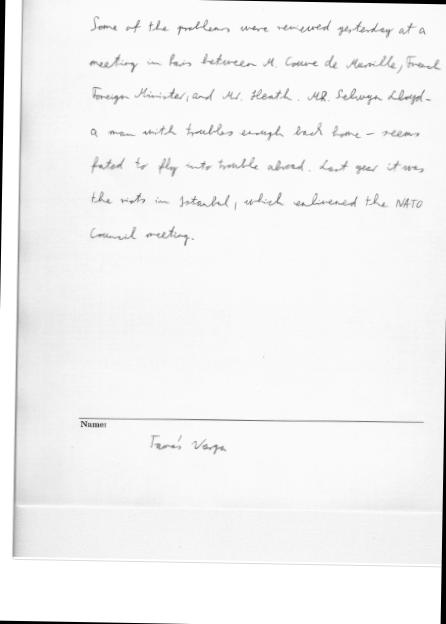 Some of the problems were reviewed yesterday at a
meeting in Paris between M. Couve de Murville, French
Foreign Minister, and Mr. Heath. MR. Selwyn Lloyd -
a man with troubles enough back home - seems
fated to fly into trouble abroad. Last year it was
the riots in Istanbul, which enlivened the NATO
Council meeting.
Name:
Tamás Varga